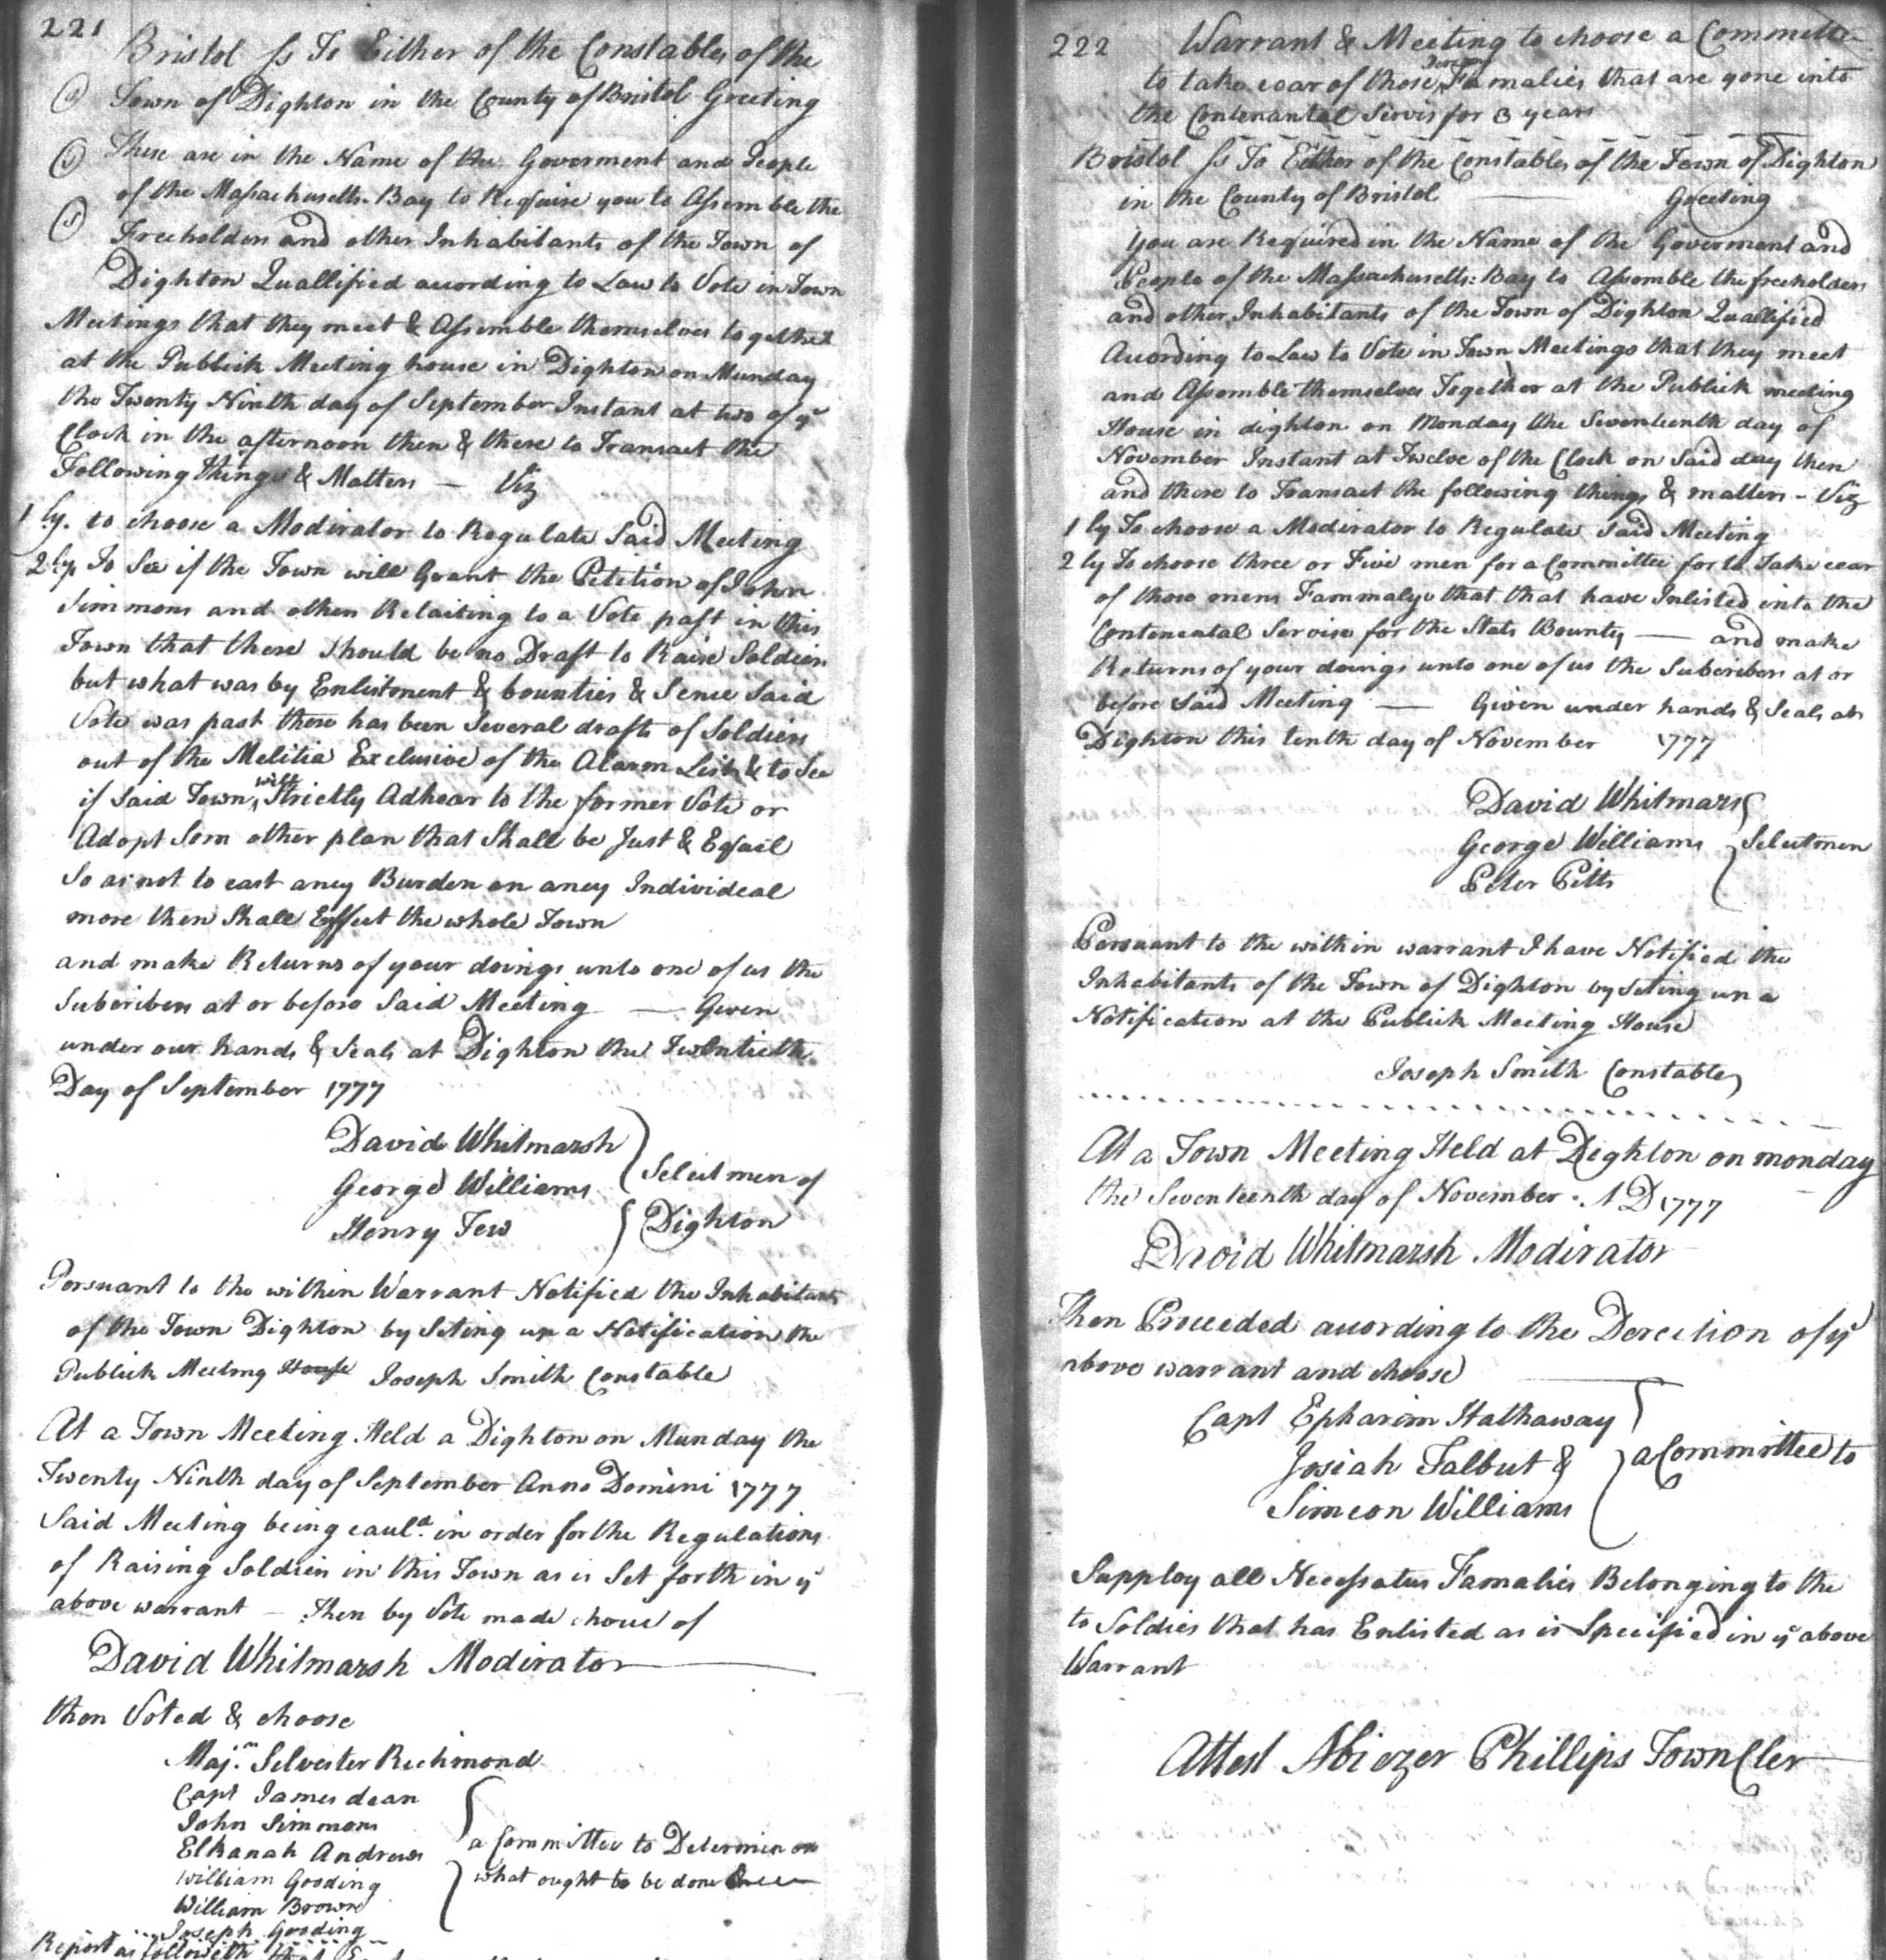 221
Bristol ss To Either of the Constables of the
Town of Dighton in the County of Bristol Greeting
These are in the Name of the Goverment and People
of the Massachusetts Bay to Require you to Assemble the
Freeholders and other Inhabitants of the Town of
Dighton Quallified according to Law to Vote in Town
Meetings that they meet & Assemble themselves together
at the Publick Meeting house in Dighton on Munday
the Twenty Ninth day of September Instant at two of ye
Clock in the afternoon then & there to Transact the
Following things & Matters — Viz
1 ly. to choose a Modirator to Regulate Said Meeting
2 ly. To See if the Town will Grant the Petition of John
Simmons and others Relaiting to a Vote past in this
Town that there should be no Draft to Raise Soldiers
but what was by Enlistment & bounties & Sence Said
Vote was past there has been Several drafts of Soldiers
out of the Melitia Exclusive of the Alarm List & to See
if Said Town will Strictly Adhear to the former Vote or
Adopt Som other plan that Shall be Just & Equil
So as not to cast aney Burden on aney Individeal
more then Shall Effect the whole Town
and make Returns of your doings unto one of us the
Subcribers at or before Said Meeting — Given
under our hands & Seals at Dighton the Twentieth
Day of September 1777
David Whitmarsh
George Williams
Henry Tew
Selectmen of
Dighton
Persuant to the within Warrant Notified the Inhabitants
of the Town Dighton by Seting up a Notification the
Publick Meeting House Joseph Smith Constable
At a Town Meeting Held a Dighton on Munday the
Twenty Ninth day of September Anno Domini 1777
Said Meeting being caul.d in order for the Regulations
of Raising Soldiers in this Town as is Set forth in ye
above warrant — Then by Vote made choice of
David Whitmarsh Modirator
then Voted & choose
Maj.r Selvester Richmond
Capt James dean
John Simmons
Elkanah Andrews
William Gooding
William Brown
Joseph Gooding
a Committee to Determin on
what ought to be done
Report as followeth that
222
Warrant & Meeting to choose a Committee
to take cear of those Famalies that are gone into
the Contenantal Servis for 3 years
Bristol ss To Either of the Constables of the Town of Dighton
in the County of Bristol — Greeting
you are Required in the Name of the Goverment and
People of the Massachusetts: Bay to Assemble the freeholders
and other Inhabitants of the Town of Dighton Quallified
According to Law to Vote in Town Meetings that they meet
and Assemble themselves Together at the Publick meeting
House in dighton on Monday the Seventeenth day of
November Instant at Twelve of the Clock on Said day then
and there to Transact the following things & matters - Viz
1 ly To choose a Modirator to Regulate Said Meeting
2 ly To choose three or Five men for a Committee for to Take cear
of those mens Fammalys that that have Inlisted into the
Contenental Servise for the Stats Bounty — and make
Returns of your doings unto one of us the Subcribers at or
before Said Meeting — Given under hands & Seals at
Dighton this tenth day of November 1777
David Whitmars
George Williams
Peter Pitts
Selectmen
Persuant to the within warrant I have Notified the
Inhabitants of the Town of Dighton by Seting up a
Notification at the Publick Meeting House
Joseph Smith Constable
At a Town Meeting Held at Dighton on monday
the Seventeenth day of November A D 1777
David Whitmarsh Modirator
Then Proceeded according to the Derection of ye
above warrant and choose
Capt Epharim Hathaway
Josiah Talbut &
Simeon Williams
a Committee to
Supploy all Necessatus Famalies Belonging to the
to Soldies that has Enlisted as is Specified in ye above
Warrant
Attest Abiezer Phillips Town Cler